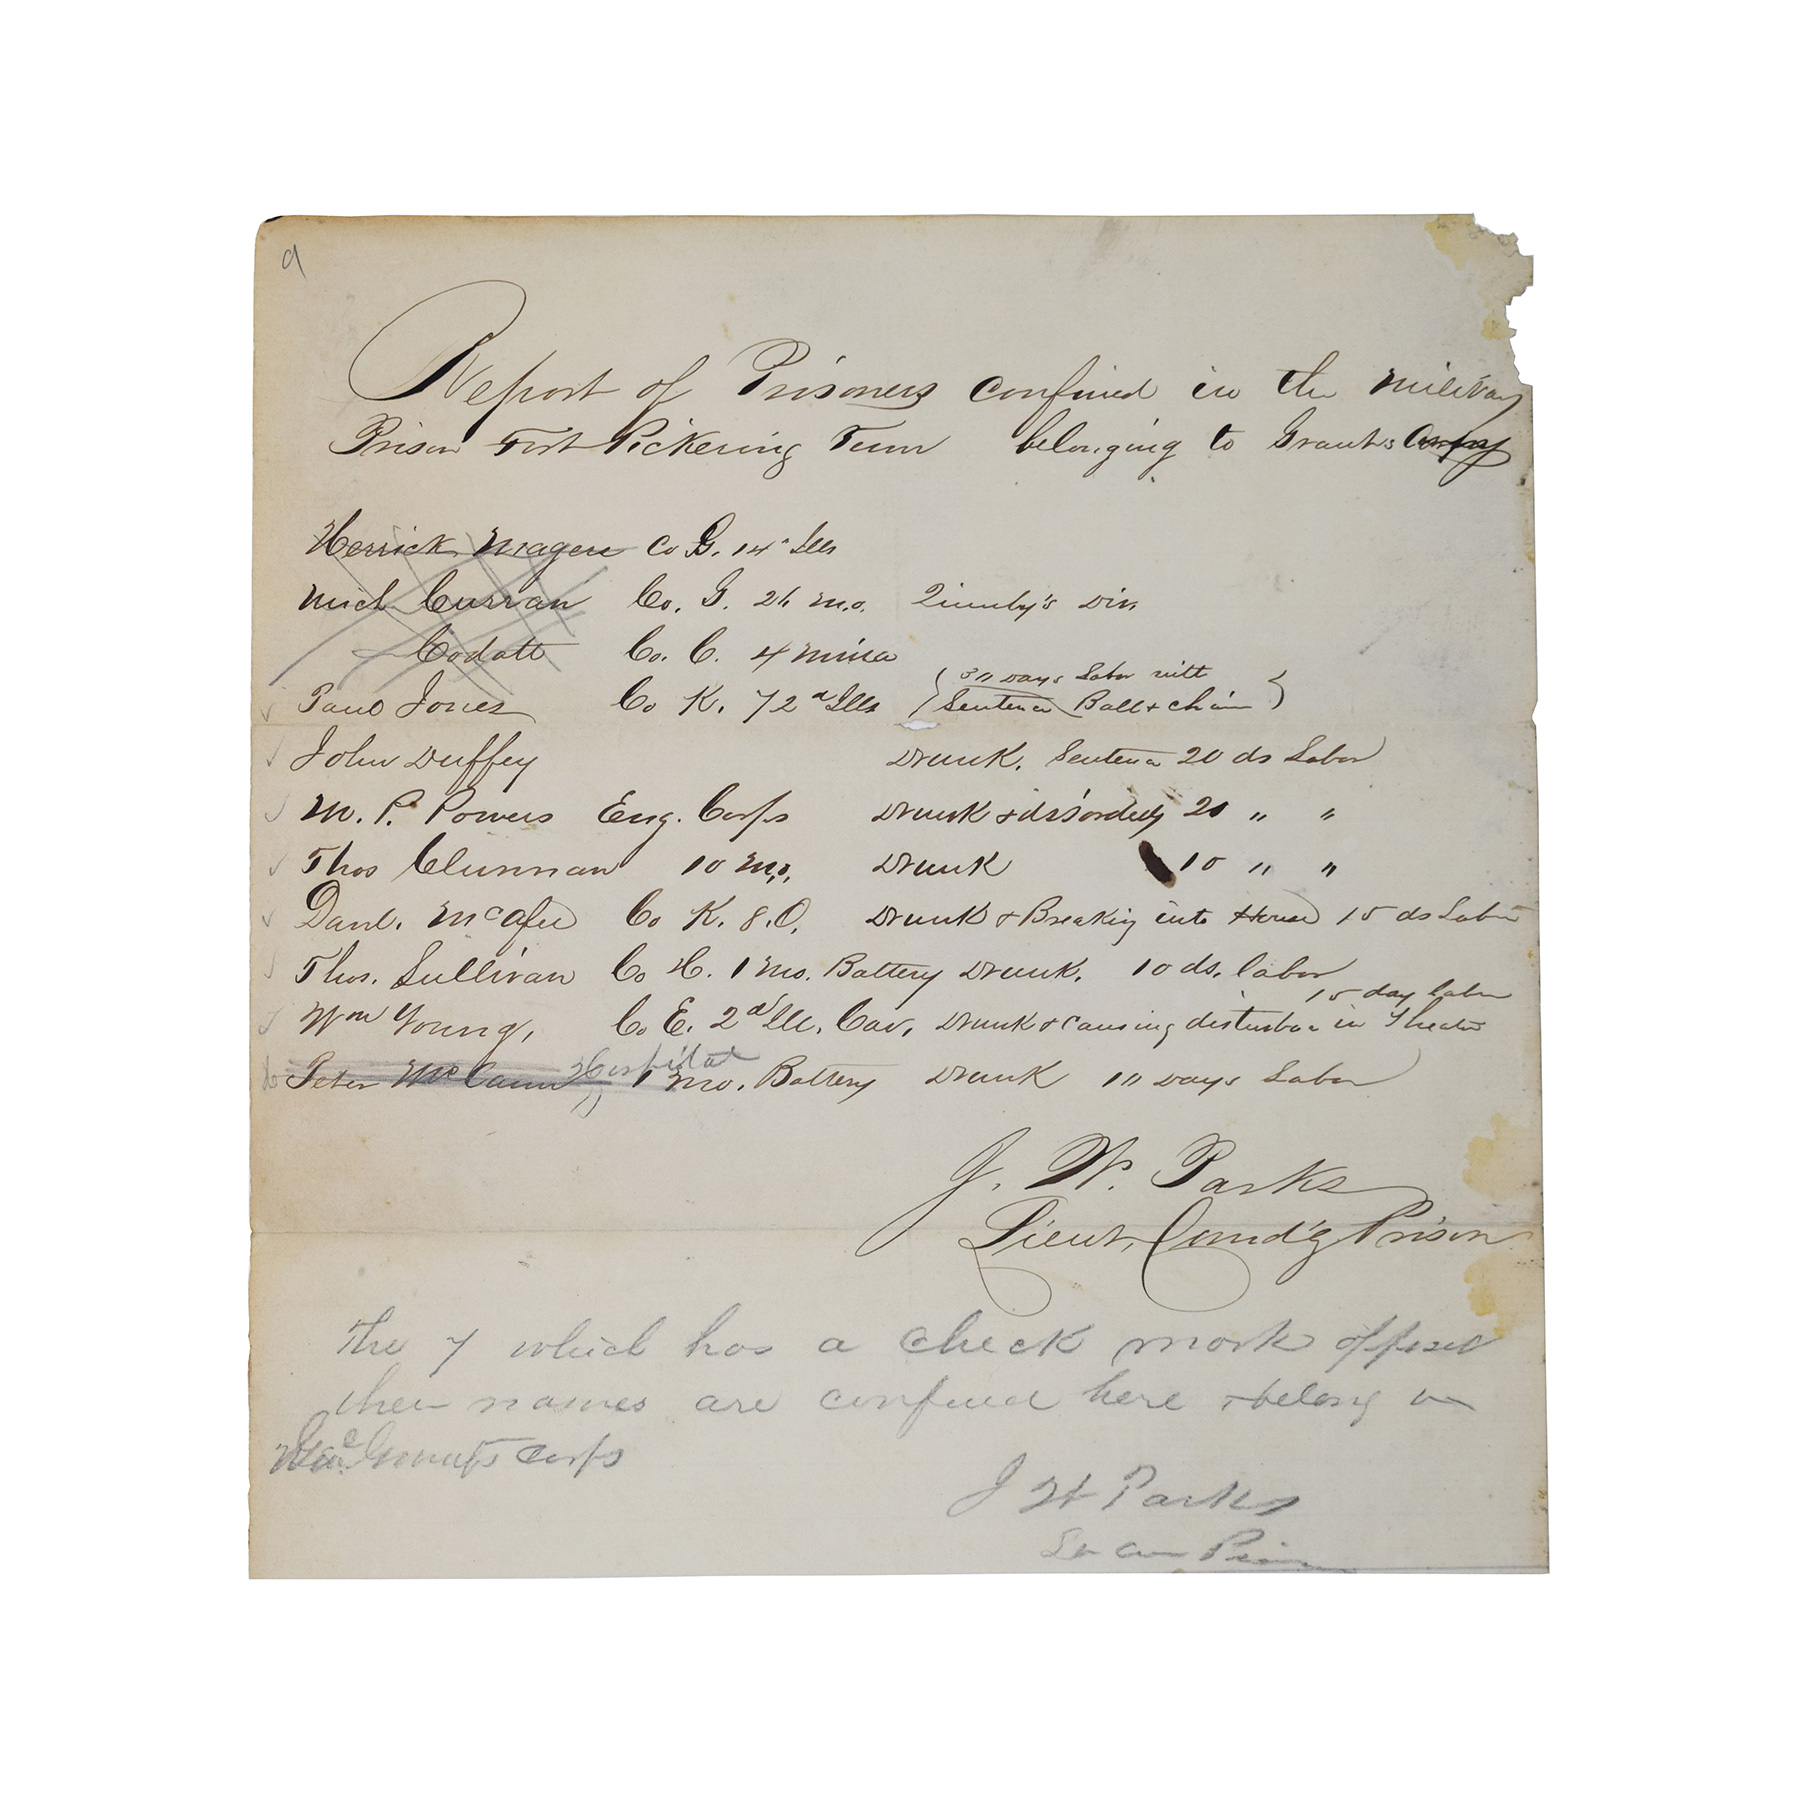 9
Report of Prisoners confined in the Military
Prison Fort Pickering Tenn belonging to Grants Army
Herrick Co G. 14" Ills
Mich Curran Co. G. 26 Mo. Quinby's Div
Codatt Co. C. 4 Minn
Paul Jones Co K. 72d Ills { 30 Days Labor with
Sentence Ball & Chain }
John Duffey Drunk. Sentence 20 ds Labor
M. P. Powers Eng. Corps Drunk & disorderly 20 " "
Thos Clunnan 10 Mo. Drunk 10 " "
Danl. McAfee Co K. 8. O. Drunk & Breaking into House 15 ds Labor
Thos. Sullivan Co H. 1 Mo. Battery Drunk. 10 ds. labor
15 day labor
Wm Young, Co E. 2d Ill. Cav. Drunk & causing disturbance in Theater
Hospital
Peter McCann 1 Mo. Battery Drunk 10 Days Labor
J. W. Parks
Lieut, Comd'g Prison
The 7 which has a check mark opposit
their names are confined here & belong in
Corps
J W Parks